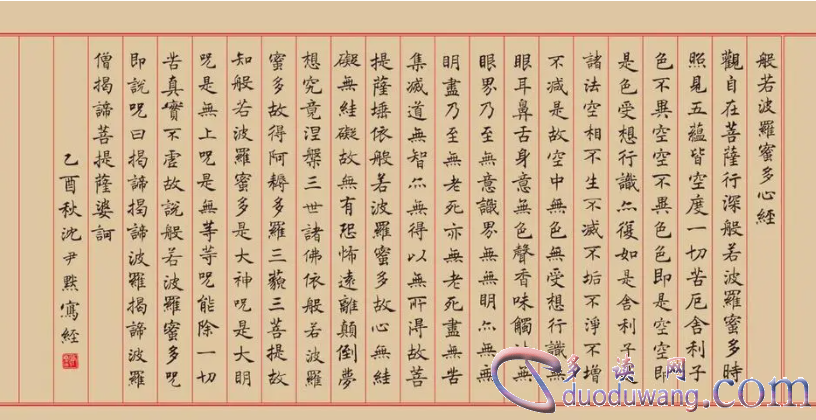 般若波羅蜜多心經
觀自在菩薩行深般若波羅蜜多時
照見五蘊皆空度一切苦厄舍利子
色不異空空不異色色即是空空即
是色受想行識亦復如是舍利子
諸法空相不生不滅不垢不淨不增
不減是故空中無色無受想行識無
眼耳鼻舌身意無色聲香味觸法無
眼界乃至無意識界無無明亦無無
明盡乃至無老死亦無老死盡無苦
集滅道無智亦無得以無所得故菩
提薩埵依般若波羅蜜多故心無絓
礙無絓礙故無有恐怖遠離顛倒夢
想究竟涅槃三世諸佛依般若波羅
蜜多故得阿耨多羅三藐三菩提故
知般若波羅蜜多是大神呪是大明
呪是無上呪是無等等呪能除一切
苦真實不虛故說般若波羅蜜多呪
即說呪曰揭諦揭諦波羅揭諦波羅
僧揭諦菩提薩婆訶
乙酉秋沈尹默寫經
多读网
duoduwang.com